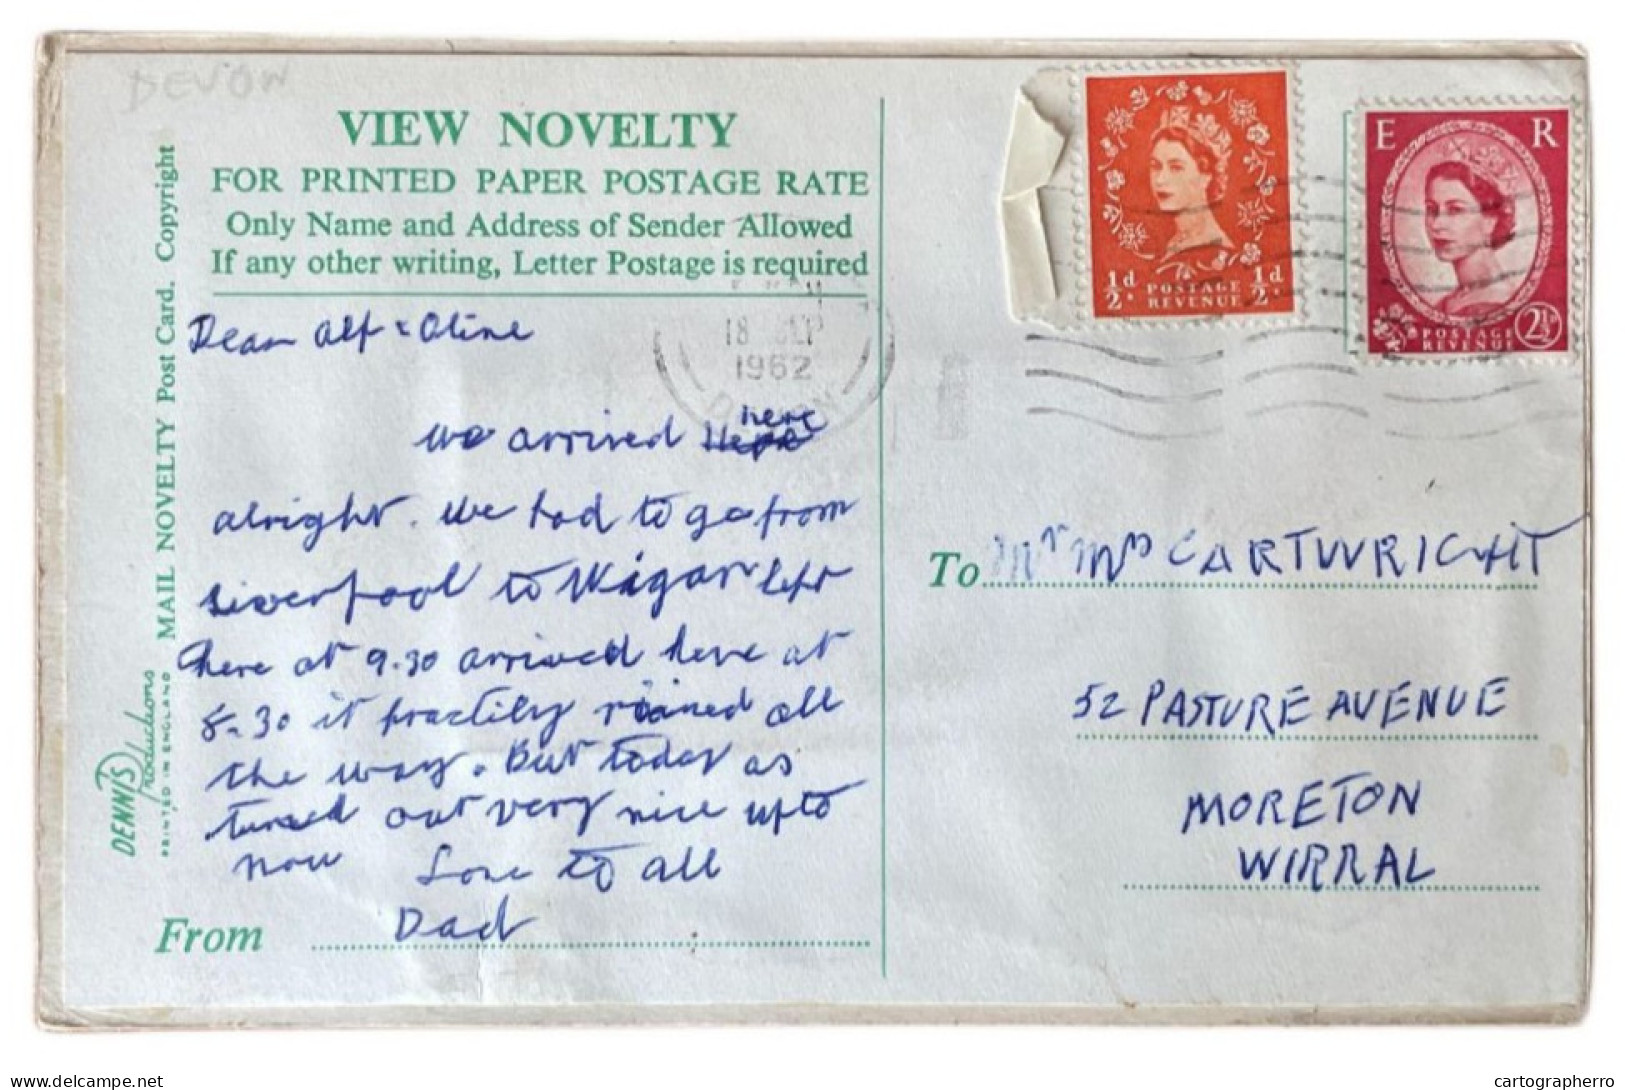 DEVON
VIEW NOVELTY
FOR PRINTED PAPER POSTAGE RATE
Only Name and Address of Sender Allowed
If any other writing, Letter Postage is required
MAIL NOVELTY Post Card. Copyright
DENNIS Productions
PRINTED IN ENGLAND
Dear Alf & Oline
We arrived here
alright. We had to go from
Liverpool to Wigan left
here at 9.30 arrived here at
8.30 it practily rained all
the way. But today as
turned out very nice upto
now Love to all
Dad
From
18 SEP
1962
DEVON
1/2d. 1/2d.
POSTAGE
REVENUE
E R
POSTAGE
REVENUE
2½d
To Mr Mrs CARTWRIGHT
52 PASTURE AVENUE
MORETON
WIRRAL
delcampe.net
cartographerro